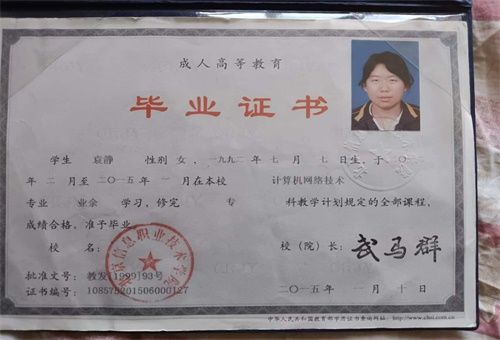 成人高等教育
毕业证书
学生 袁静 性别 女，一九九二 年 七 月 七 日生，于 二〇
年 二 月至 二〇一五 年 一 月在本校 计算机网络技术
专业 业余 学习，修完 专 科教学计划规定的全部课程，
成绩合格，准予毕业。
校 名： 校（院）长： 武马群
北京信息职业技术学院
批准文号：教发[1999]93号
证书编号：108575201506000127 二〇一五 年 一 月 十 日
中华人民共和国教育部学历证书查询网址：http://www.chsi.com.cn